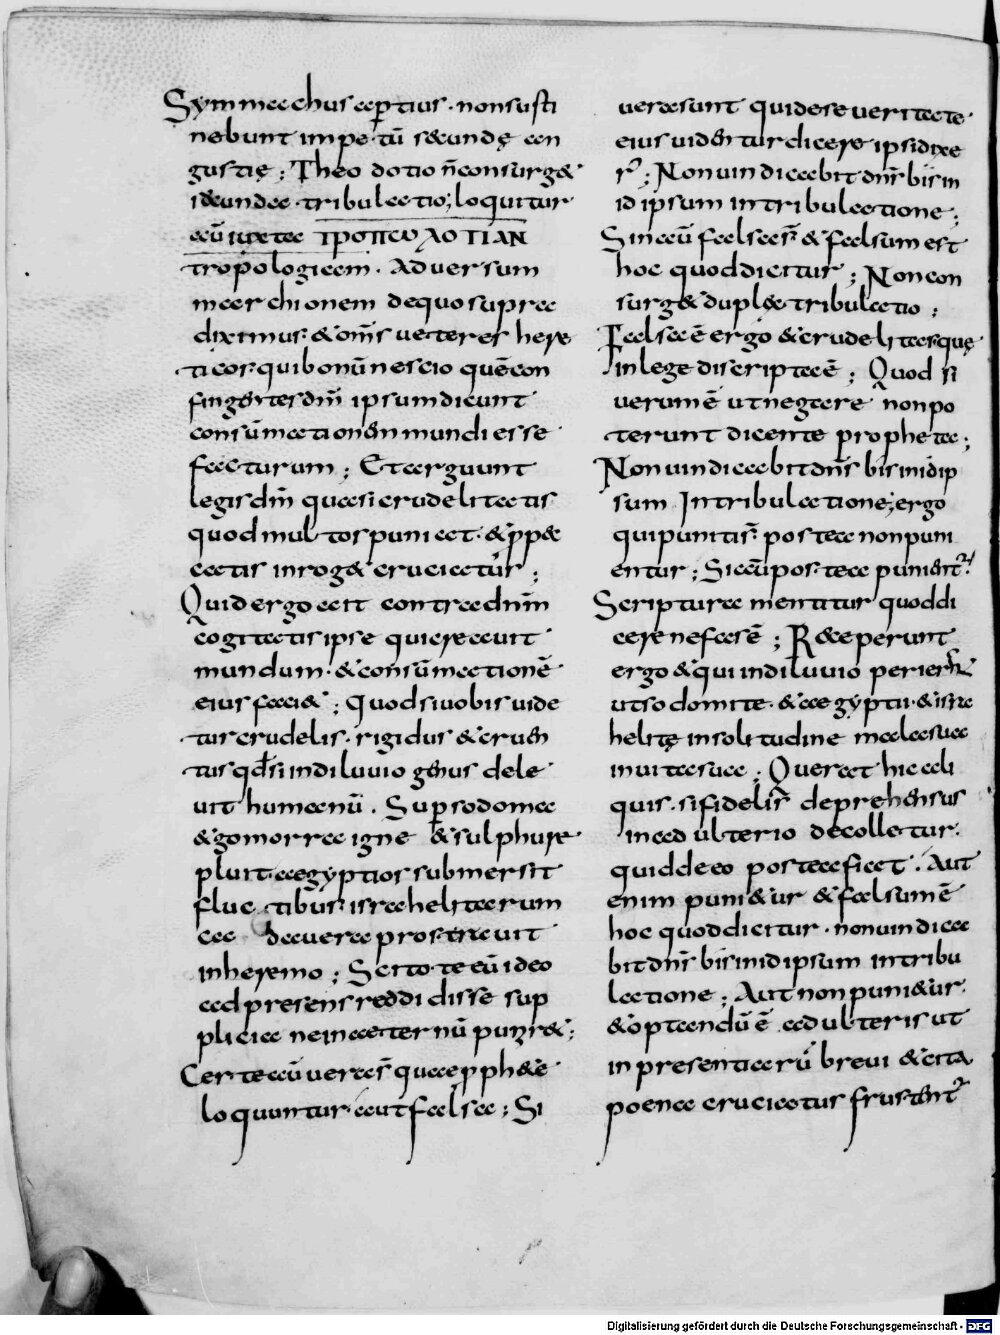 Symmachus apertius · nonsusti
nebunt impetū secundę an
gustię ; Theodotio n̄consurg&
secunda · tribulatio; loquitur
aūt iuxta ΤΡΟΠΟΛΟΓΙΑΝ
tropologiam · Adversum
marchionem dequo supra
diximus · & om̄s veteres here
ticos · quibonū nescio quē con
fingentes dm̄ ipsum dicunt
consūmationem mundi esse
facturum ; Et arguunt
legis dm̄ quasi crudelitatis
quod multos puniat · & p̄ pec
catis inrog& cruciatus ;
Quid ergo ait contra dnm̄
cogitatis ipse qui creavit
mundum · & consūmationē
eius faci& ; Quod si vobis vide
tur crudelis · rigidus & cruen
tus qđ si in diluvio genus dele
vit humanū . Sup sodoma
& gomorra igne & sulphure
pluit aegyptios submersit
fluctibus israhelitarum
cadavera prostravit
in heremo ; Scitote eū ideo
ad presens reddidisse sup
plicia ne in aeternū punir& ;
Certe aū veras̄ quae pph&ę
loquuntur aut falsa ; Si
vera sunt quidese veritate
eius videntur dicere ipsi dixe
r̄ ; Non vindicabit dn̄s bis in
id ipsum in tribulatione ;
Sin aū falsa s̄ & falsum est
hoc quod dicitur ; Non con
surg& duplex tribulatio ;
Falsa ē ergo & crudelitas quę
in lege discripta ē ; Quod si
verum ē ut negare non po
terunt dicente propheta ;
Non vindicabit dn̄s bis in idip
sum In tribulatione; ergo
qui puniti s̄ postea non puni
entur ; Si aū postea punientr̄
Scriptura mentitur quod di
cere nefas ē ; Receperunt
ergo & qui in diluvio perier̄
ut sodomite · & aegyptii · & isra
helitę in solitudine mala sua
in vita sua ; Querat hic ali
quis · si fidelis deprehensus
in adulterio decolletur ·
quid de eo postea fiat . Aut
enim puni&ur & falsum ē
hoc quod dicitur · non vindica
bit dn̄s bis in id ipsum in tribu
latione ; Aut non puni&ur ·
& optandū ē adulteris ut
in presentiarū brevi & cita
poena cruciatus frustrentr̄
Digitalisierung gefördert durch die Deutsche Forschungsgemeinschaft - DFG